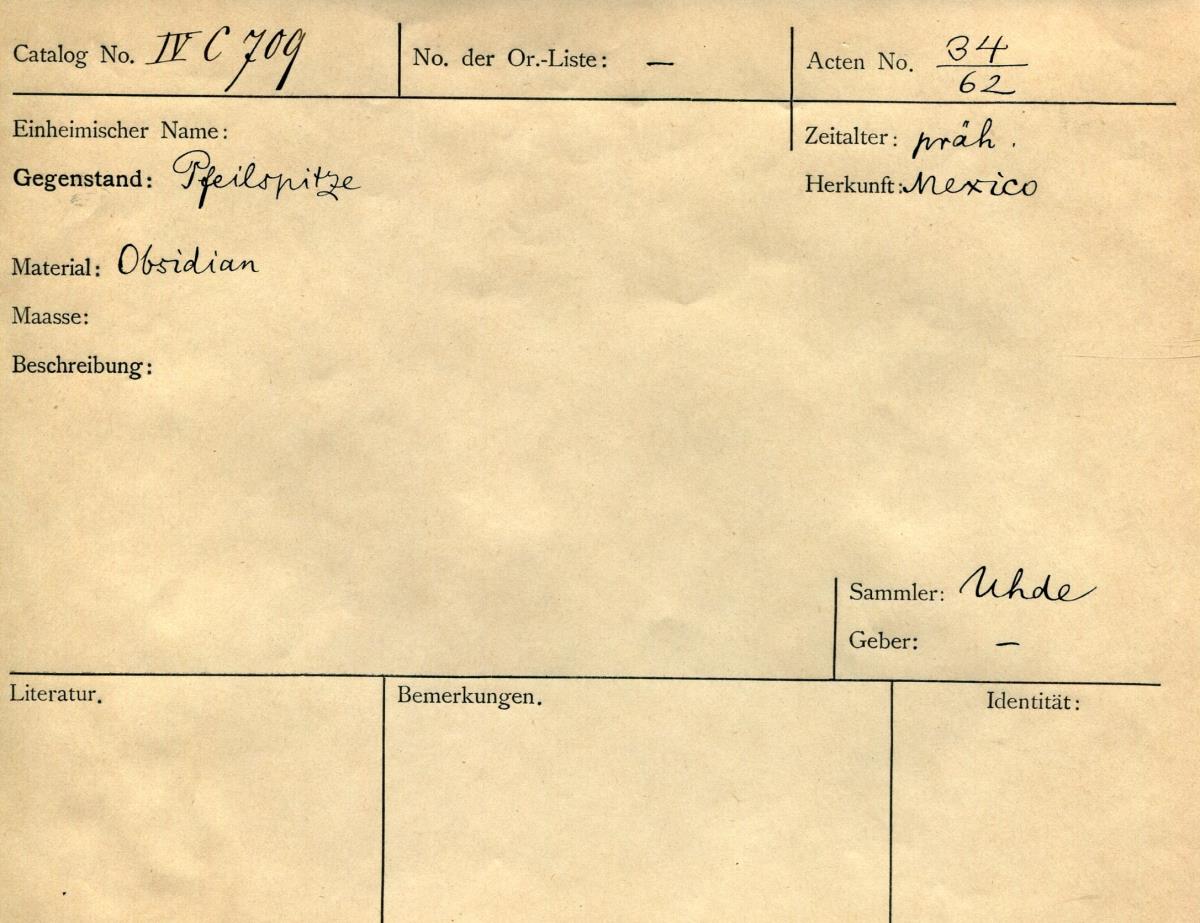 Catalog No. IV C 709
No. der Or.-Liste: —
Acten No. 34/62
Einheimischer Name:
Zeitalter: präh.
Gegenstand: Pfeilspitze
Herkunft: Mexico
Material: Obsidian
Maasse:
Beschreibung:
Sammler: Uhde
Geber: —
Literatur.
Bemerkungen.
Identität: